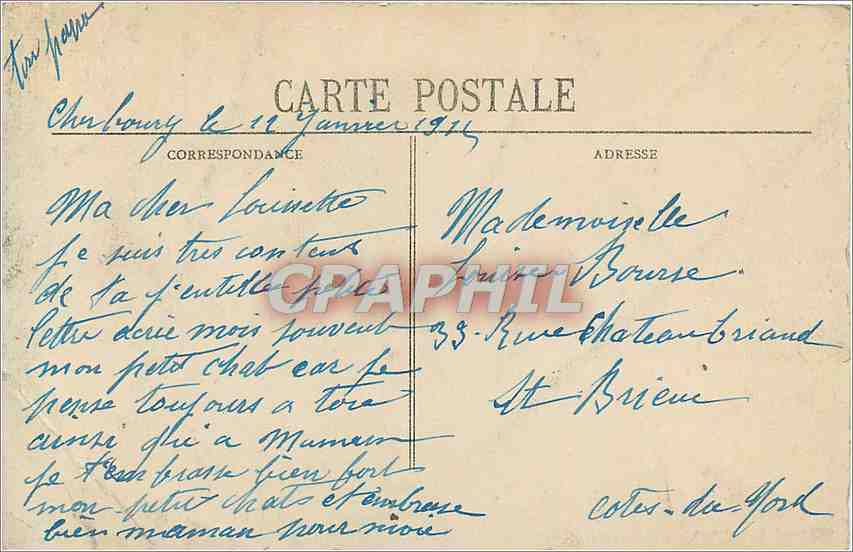 ton papa
CARTE POSTALE
Cherbourg le 12 Janvier 191
CORRESPONDANCE
Ma cher Louissette
je suis tres content
de ta j'entille petite
lettre ecrie mois souvent
mon petit chat car je
pense toujours a toie
ainsi qu'a Mamam
je t'embrasse bien fort
mon petit chats et embrasse
bien maman pour moie
ADRESSE
Mademoiselle
Louise Bourse
33 - Rue Chateaubriand
St Brieuc
Cotes-du-Nord
CPARPHIL